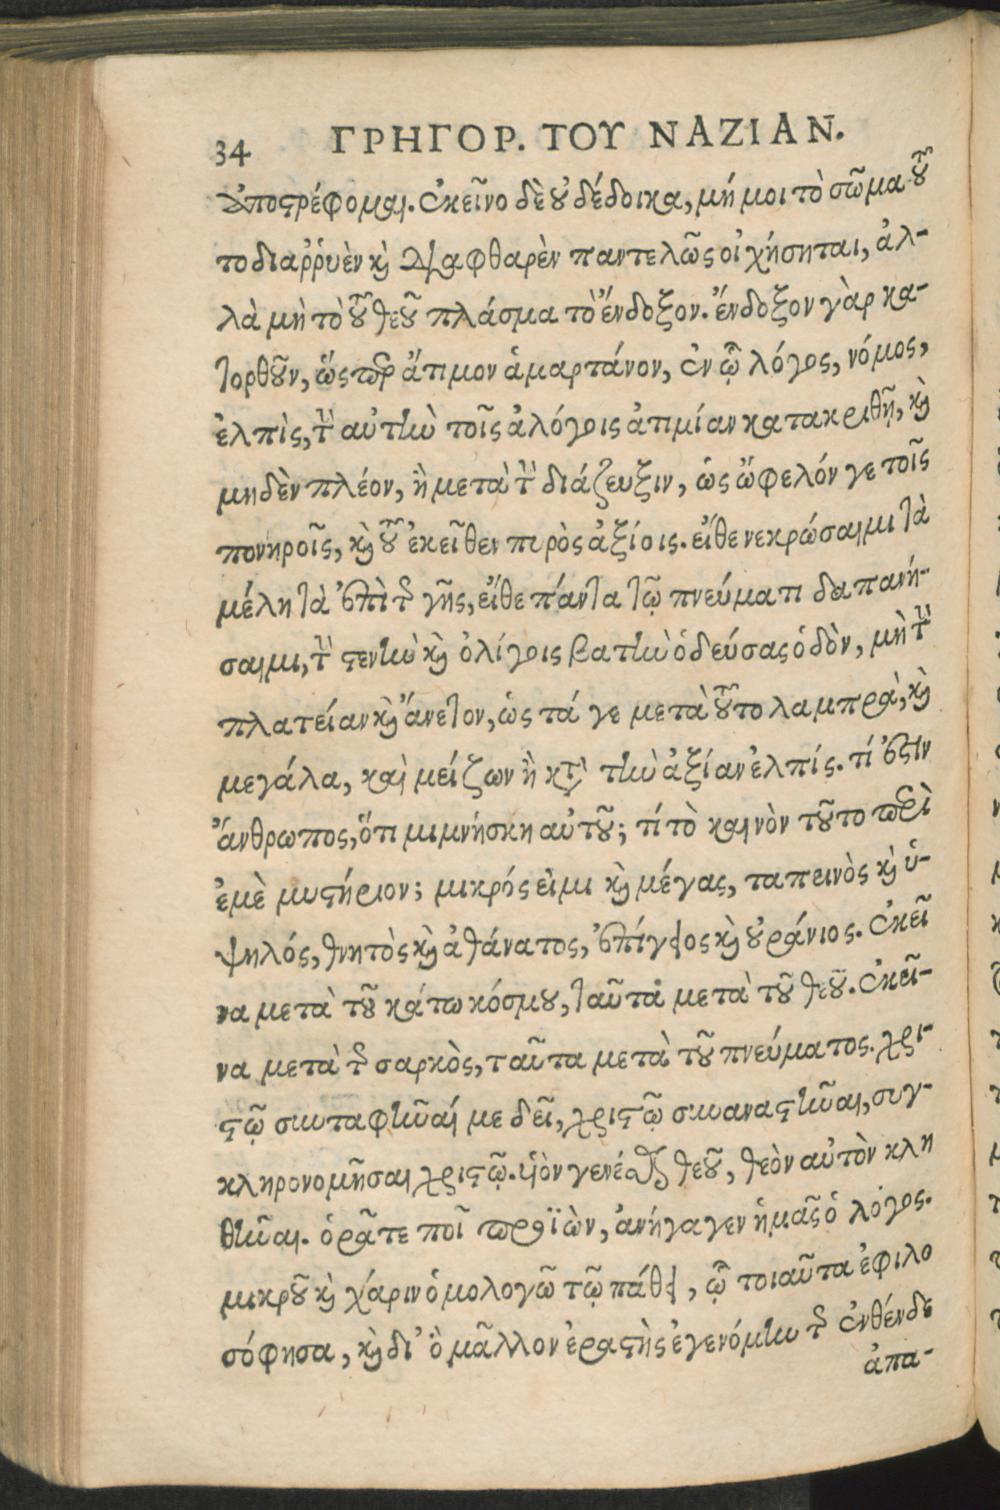 34 ΓΡΗΓΟΡ. ΤΟΥ ΝΑΖΙΑΝ.
ἀποστρέφομαι. ἐκεῖνο δὲ οὐ δέδοικα, μή μοι τὸ σῶμα τοῦ-
το διαῤῥυὲν καὶ διαφθαρὲν παντελῶς οἰχήσηται, ἀλ-
λὰ μὴ τὸ τοῦ θεοῦ πλάσμα τὸ ἔνδοξον. ἔνδοξον γὰρ κα-
τορθοῦν, ὥσπερ ἄτιμον ἁμαρτάνον, ἐν ᾧ λόγος, νόμος,
ἐλπὶς, τὴν αὐτὴν τοῖς ἀλόγοις ἀτιμίαν κατακριθῇ, καὶ
μηδὲν πλέον, ᾖ μετὰ τὴν διάζευξιν, ὡς ὤφελόν γε τοῖς
πονηροῖς, καὶ τοῦ ἐκεῖθεν πυρὸς ἀξίοις. εἴθε νεκρώσαιμι τὰ
μέλη τὰ ἐπὶ τῆς γῆς, εἴθε πάντα τῷ πνεύματι δαπανή-
σαιμι, τὴν στενὴν καὶ ὀλίγοις βατὴν ὁδεύσας ὁδὸν, μὴ τὴν
πλατείαν καὶ ἄνετον, ὡς τά γε μετὰ τοῦτο λαμπρὰ, καὶ
μεγάλα, καὶ μείζων ἢ κατὰ τὴν ἀξίαν ἐλπίς. τί ἐστιν
ἄνθρωπος, ὅτι μιμνήσκη αὐτοῦ; τί τὸ καινὸν τοῦτο περὶ
ἐμὲ μυστήριον; μικρός εἰμι καὶ μέγας, ταπεινὸς καὶ ὑ-
ψηλός, θνητὸς καὶ ἀθάνατος, ἐπίγειος καὶ οὐράνιος. ἐκεῖ
να μετὰ τοῦ κάτω κόσμου, ταῦτα μετὰ τοῦ θεοῦ. ἐκεῖ-
να μετὰ τῆς σαρκὸς, ταῦτα μετὰ τοῦ πνεύματος. χρι-
στῷ συνταφῆναί με δεῖ, χριστῷ συναναστῆναι, συγ-
κληρονομῆσαι χριστῷ. υἱὸν γενέσθαι θεοῦ, θεὸν αὐτὸν κλη
θῆναι. ὁρᾶτε ποῖ προϊὼν, ἀνήγαγεν ἡμᾶς ὁ λόγος.
μικροῦ καὶ χάριν ὁμολογῶ τῷ πάθει, ᾧ τοιαῦτα ἐφιλο
σόφησα, καὶ δι' ὃ μᾶλλον ἐραστὴς ἐγενόμην τῆς ἐνθένδε
ἀπα-